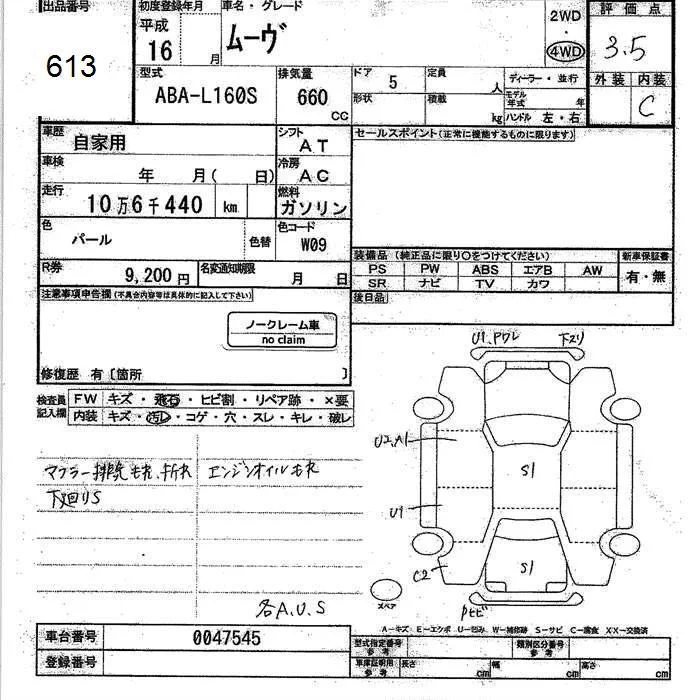 出品番号
613
初度登録年月
平成
16 月
車名・グレード
ムーヴ
2WD
・
4WD
評価点
3.5
外装 内装
C
型式
ABA-L160S
排気量
660 CC
ドア 5
定員 人
ディーラー・並行
形状
積載 kg
モデル年式 年
ハンドル 左・右
車歴
自家用
シフト
AT
セールスポイント(正常に機能するものに限ります)
車検
年 月( 日)
冷房
AC
走行
10万6千440 km
燃料
ガソリン
色
パール
色替
色コード
W09
装備品 (純正品に限り○をつけてください)
新車保証書
PS PW ABS エアB AW
有・無
SR ナビ TV カワ
R券
9,200円
名変通知期限
月 日
後日品
注意事項申告欄(不具合内容等は具体的に記入して下さい)
ノークレーム車
no claim
修復歴 有〔箇所 〕
検査員記入欄
FW キズ・飛石・ヒビ割・リペア跡・×要
内装 キズ・汚レ・コゲ・穴・スレ・キレ・破レ
マフラー排院モレ、折れ
エンジンオイルモレ
下廻りS
各A.U.S
U1,Pワレ
下ズリ
U2,A1
S1
U1
S1
C2
Pヒビ
スペア
A－キズ E－エクボ U－凹み W－補修跡 S－サビ C－腐食 XX－交換済
車台番号
0047545
登録番号
型式指定番号
参考
類別区分番号
参考
車庫証明用
参考
長さ cm
幅 cm
高さ cm